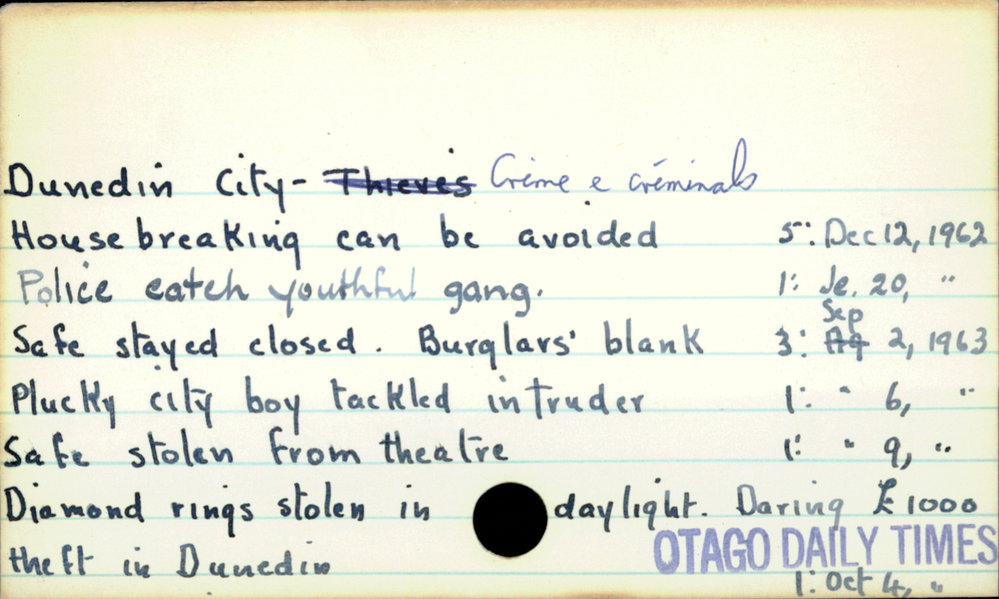 Dunedin City - Thieves Crime & criminals
House breaking can be avoided 5: Dec 12, 1962
Police catch youthful gang. 1: Je. 20, "
Sep
Safe stayed closed. Burglars' blank 3: Ag 2, 1963
Plucky city boy tackled intruder 1: " 6, "
Safe stolen from theatre 1: " 9, "
Diamond rings stolen in daylight. Daring £1000
theft in Dunedin OTAGO DAILY TIMES
1: Oct 4, "